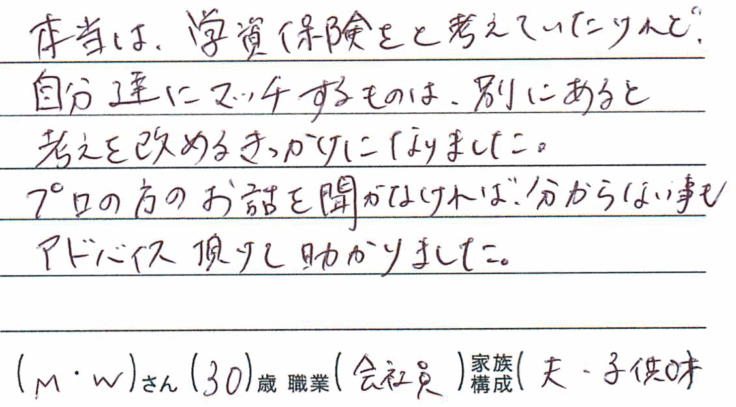 本当は、学資保険をと考えていたけれど、
自分達にマッチするものは、別にあると
考えを改めるきっかけになりました。
プロの方のお話を聞かなければ、分からない事も
アドバイス頂けて助かりました。
(M・W)さん(30)歳 職業(会社員)家族構成(夫・子供0才